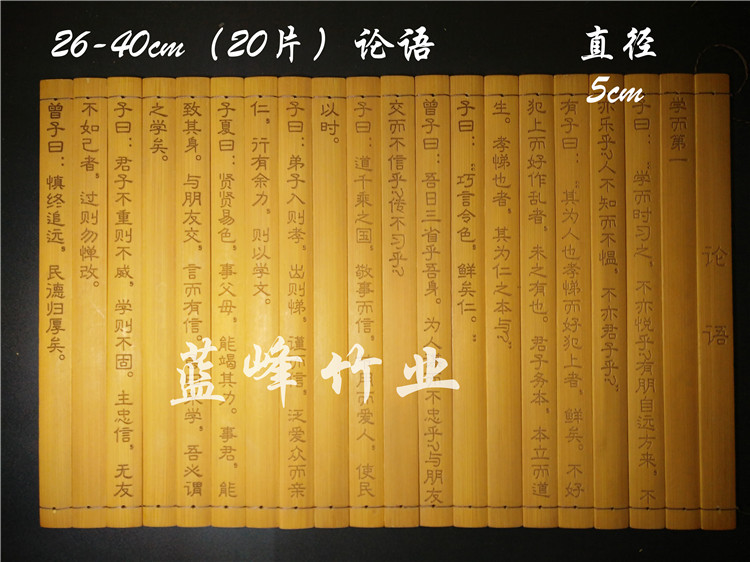 26-40cm（20片）论语
直径
5cm
论语
学而第一
子曰：：学而时习之，不亦悦乎？有朋自远方来，不
亦乐乎？人不知而不愠，不亦君子乎？：
有子曰：：其为人也孝悌而好犯上者，鲜矣。不好
犯上而好作乱者，未之有也。君子务本，本立而道
生。孝悌也者，其为仁之本与？：
子曰：：巧言令色，鲜矣仁。：
曾子曰：吾日三省乎吾身。为人不忠乎？与朋友
交而不信乎？传不习乎？
子曰：道千乘之国，敬事而信，用而爱人，使民
以时。
子曰：弟子入则孝，出则悌，谨而信，泛爱众而亲
仁，行有余力，则以学文。
子夏曰：贤贤易色，事父母，能竭其力。事君，能
致其身。与朋友交，言而有信。未学，吾必谓
之学矣。
子曰：君子不重则不威，学则不固。主忠信，无友
不如己者，过则勿惮改。
曾子曰：慎终追远，民德归厚矣。
蓝峰竹业